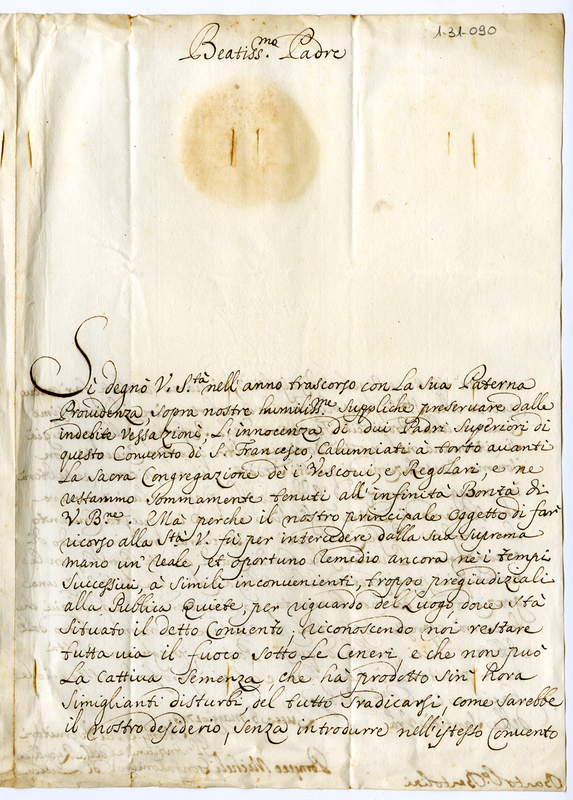 1-31-090
Beatiss.mo Padre
Si degnò V. S.tà nell'anno trascorso con la sua Paterna
Providenza, sopra nostre humiliss.me suppliche preservare dalle
indebite vessazioni, L'innocenza di dui Padri Superiori di
questo Convento di S. Francesco, Calunniati à torto avanti
La Sacra Congregazione de i Vescovi, e Regolari, e ne
restammo Sommamente tenuti all'infinita Bontà di
V. B.ne. Mà perche il nostro principale oggetto di far
ricorso alla S.tà V. fù per intercedere dalla Sua Suprema
mano un reale, et oportuno remedio ancora ne i tempi
Successivi, à Simili inconvenienti, troppo pregiudiziali
alla Publica Quiete, per riguardo del Luogo dove Stà
Situato il detto Convento; riconoscendo noi restare
tutta via il fuoco Sotto Le Ceneri, e che non può
La Cattiva Semenza che hà prodotto sin' hora
Simiglianti disturbi, del tutto Sradicarsi, come sarebbe
il nostro desiderio, Senza introdurre nell'istesso Convento